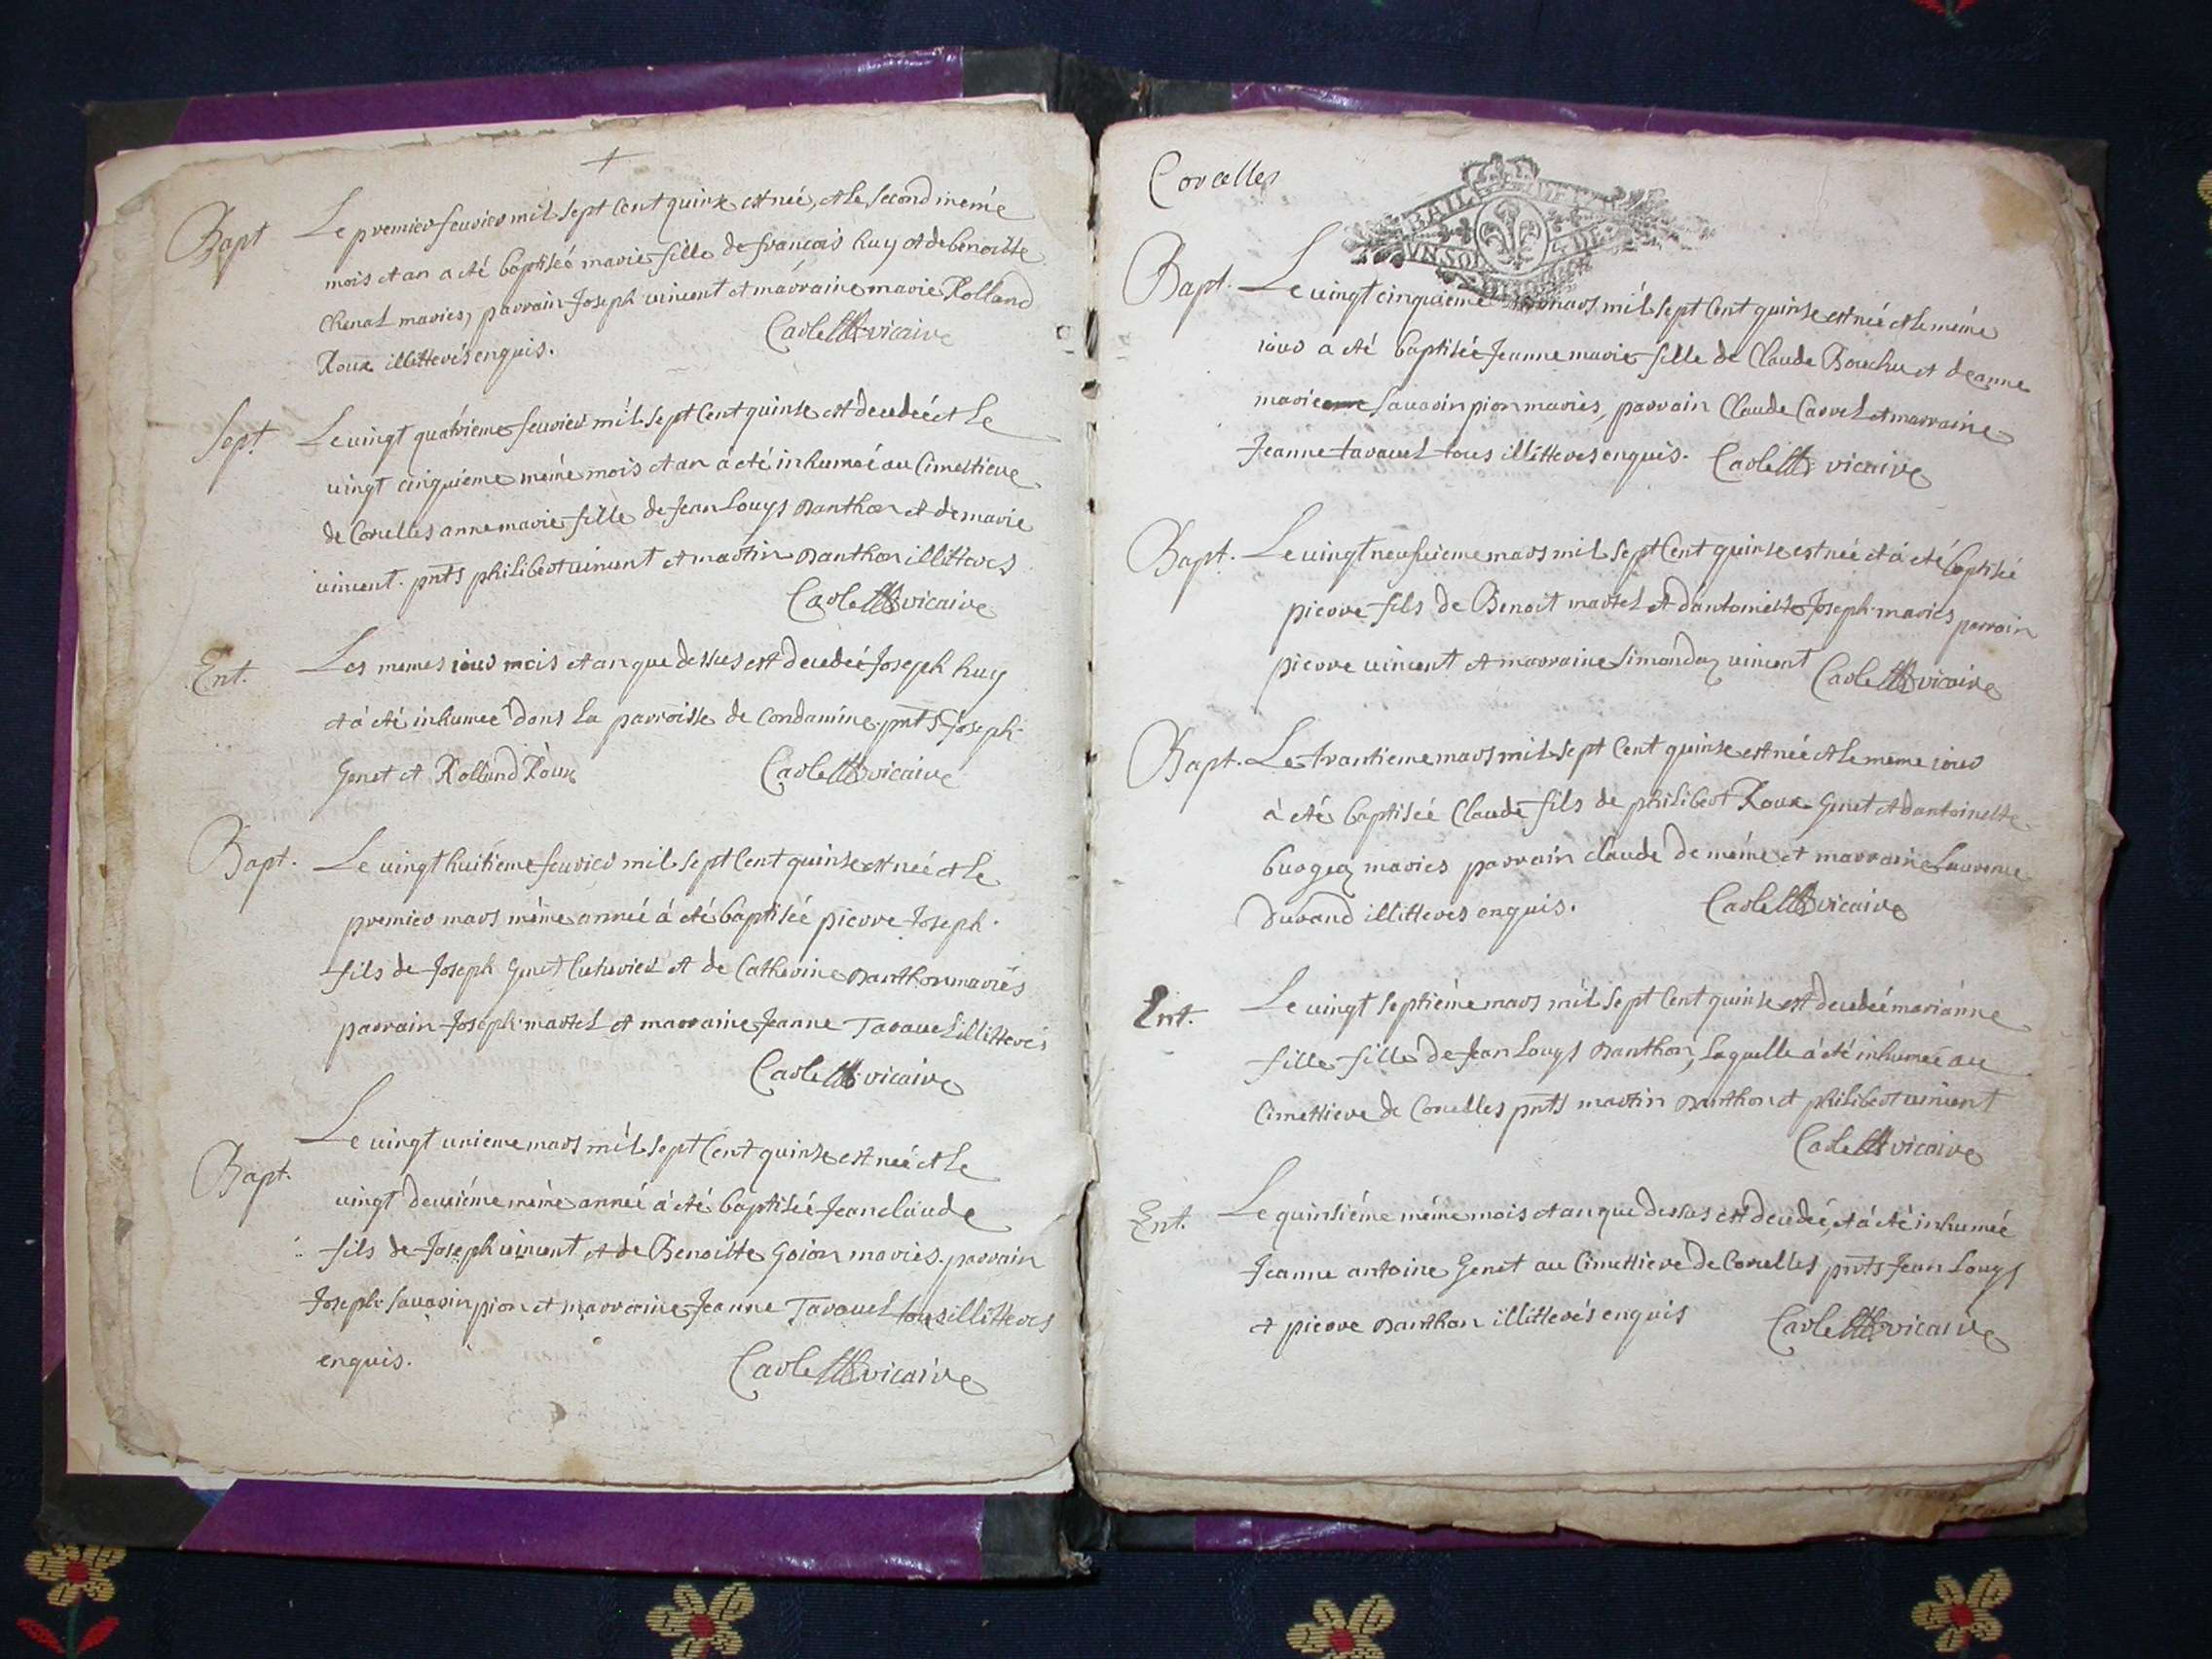 Bapt Le premier feurier mil sept Cent quinze est née, et le second méme
mois et an a eté baptisée marie fille de françois huy et de benoitte
Chenal mariés, parrain Joseph uincent et márraine marie Rolland
Roux illitterés enquis. Carlette vicaire
Sept. Le uingt quatriéme feurier mil sept Cent quinse est decedeé et le
uingt cinquieme méme mois et an a eté inhumeé au Cimettiere
de Corcelles anne marie fille de Jean Louys Danthon et de marie
uincent. pnts philibert uincent et martin Danthon illitteres
Carlette vicaire
Ent. Les memes iour mois et an que dessus est decedeé Joseph huy
et a eté inhumeé dans la parroisse de condamine. pnts Joseph
Genet et Rolland Roux Carlette vicaire
Bapt. Le uingt huitieme feurier mil sept Cent quinse est neé et le
premier mars méme anneé á eté baptiseé pierre Joseph.
fils de Joseph Genet et de Catherine Danthon mariés
parrain Joseph martel et marraine Jeanne Tarauel illitterés
Carlette vicaire
Bapt. Le uingt unieme mars mil sept Cent quinse est neé et le
uingt deuxiéme méme anneé á eté baptiseé Jean claude
fils de Joseph uincent et de Benoitte Goion mariés. parrain
Joseph Sauarin pion et marraine Jeanne Tarauel tous illitteres
enquis. Carlette vicaire
Corcelles
Bapt. Le uingt cinquieme mars mil sept Cent quinse est neé et le méme
iour a eté baptiseé Jeanne marie fille de Claude Bouchu et Jeanne
marie Sauarin pion mariés, parrain Claude Carrel et marraine
Jeanne tarauel tous illitteres enquis. Carlette vicaire
Bapt. Le uingt neufuieme mars mil sept Cent quinse est neé et á eté baptiseé
pierre fils de Benoit martel et dantoinette Joseph mariés parrain
pierre uincent et marraine Simonde uincent Carlette vicaire
Bapt. Le trantieme mars mil sept Cent quinse est neé et le meme iour
á eté baptiseé Claude fils de philibert Roux Genet et dantoinette
mariés parrain claude de méme et marraine Laurence
Durand illitteres enquis. Carlette vicaire
Ent. Le uingt septiéme mars mil sept Cent quinse est decedeé marianne
fille fille de Jean Louys Danthon, laquelle á eté inhumeé au
Cimettiere de Corcelles pnts martin Danthon et philibert uincent
Carlette vicaire
Ent. Le quinsiéme méme mois et an que dessus est decedeé, et á eté inhumeé
Jeanne antoine Genet au Cimettiere de Corcelles pnts Jean Louys
et pierre Danthon illitterés enquis Carlette vicaire